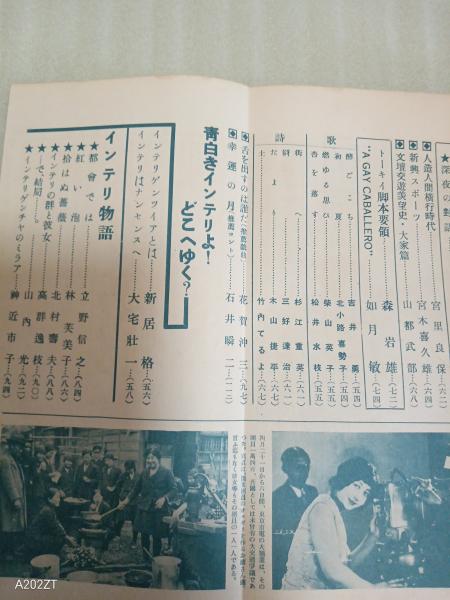 ★深夜の對話
宮里良保…(六二)
◆人造人間横行時代
宮木喜久雄…(六六)
◆新興スポーツ
◆文壇交遊羨望史・大家篇
山都武部…(六八)
トーキイ脚本要領
森岩雄…(七二)
"A GAY CABALLERO"
如月敏…(七四)
詩歌
醉どち
吉井勇…(五四)
和夏
北小路喜勢子…(五五)
燃ゆる思ひ
柴山英子…(五五)
杏を落す
松井水枝…(五五)
街へ
杉江重英…(六一)
三好達治…(六一)
たより
木山捷平…(六七)
土
竹内てるよ…(六七)
◆舌を出すのは誰だ(推薦戯曲)
花賀沖三…(六七)
◆幸運の月(推薦コント)
石井瞬二…(一二二)
青白きインテリよ!
どこへゆく?
インテリゲンツイアとは
新居格…(五六)
インテリはナンセンスへ
大宅壮一…(五八)
インテリ物語
★都會では
立野信之…(八四)
★紅い泡
林芙美子…(八六)
★拾はぬ薔薇
北村壽夫…(八八)
★インテリの群と彼女
高群逸枝…(九〇)
★で、結局
山内光…(九二)
★インテリゲンチャのミラア
神近市子…(九四)
A202ZT